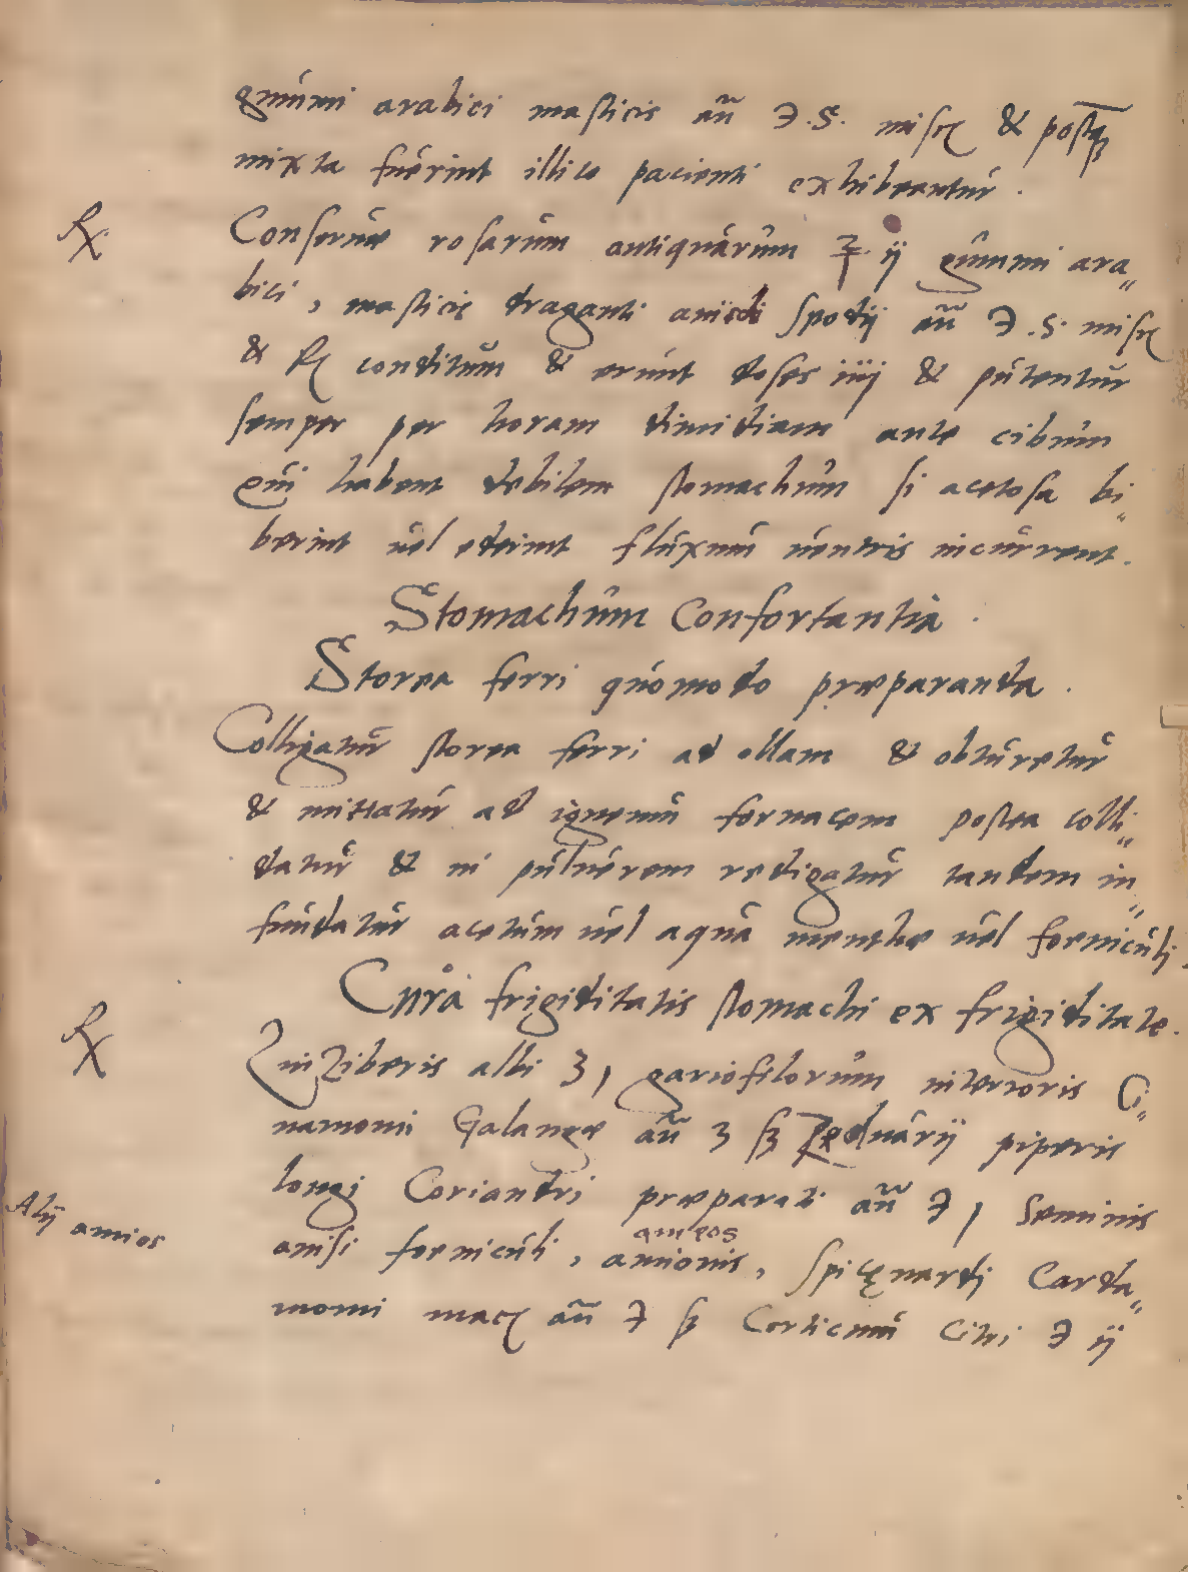 gummi arabici masticis añ ℈.S. misce & postquam
mixta fuerint illico pacienti exhibeantur.
℞ Conseruæ rosarum antiquarum ℥ ij gummi ara„
bici, masticis draganti anisi Spodij añ ℈.S. misce
& fiat conditum & erunt doses iiij & putentur
semper per horam dimidiam ante cibum
qui habent debilem stomachum si acetosa bi„
berint uel ederint fluxum uentris incurrent.
Stomachum Confortantia.
Storea ferri quomodo præparanda.
Colligatur storea ferri ad ollam & obturetur
& mittatur ad igneum fornacem postea colli„
datur & in puluerem redigatur tandem in„
fundatur acetum uel aqua menthæ uel foeniculi.
Cura frigiditatis stomachi ex frigiditate.
℞ Zinziberis albi ʒ j gariofilorum interioris Ci„
namomi Galangæ añ ʒ ß Zeduarij piperis
longi Coriandri præparati añ ℈ j Seminis
Alij amios
ameos
anisi foeniculi, amionis, Spicęnardi Carda„
momi macis añ ℈ ß Corticum Citri ℈ ij